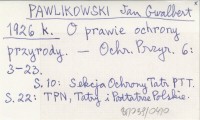 PAWLIKOWSKI Jan Gwalbert
1926 k. O prawie ochrony
przyrody. — Ochr. Przyr. 6:
3-23.
S. 10: Sekcja Ochrony Tatr PTT.
S. 22: TPN, Tatry i Podtatrze Polskie.